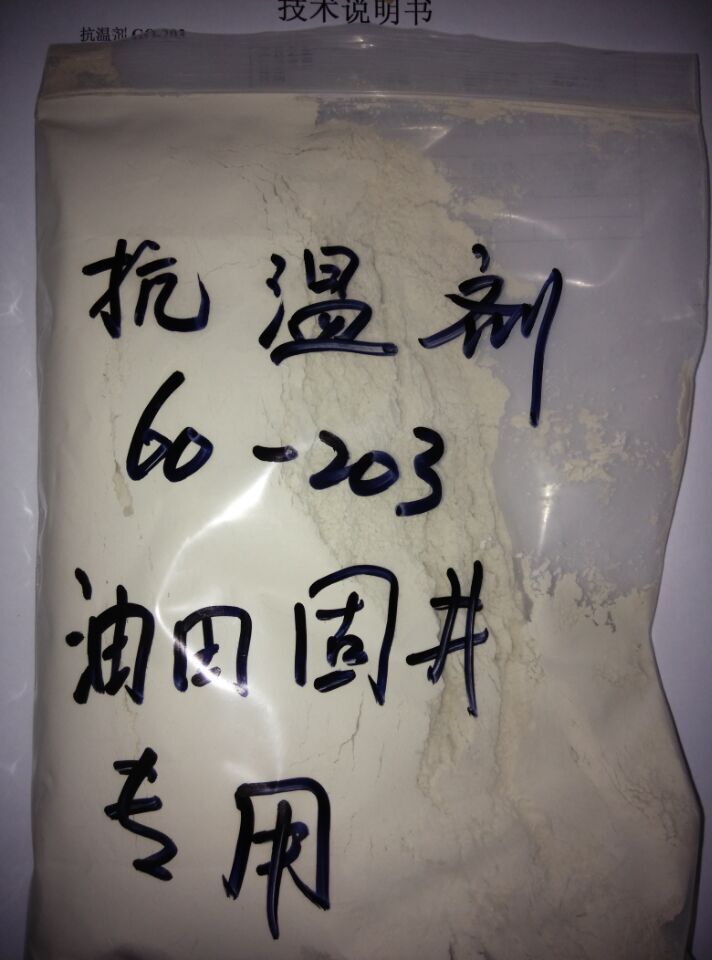 技术说明书
抗温剂 GO-203
抗温剂
GO-203
油田固井
专用